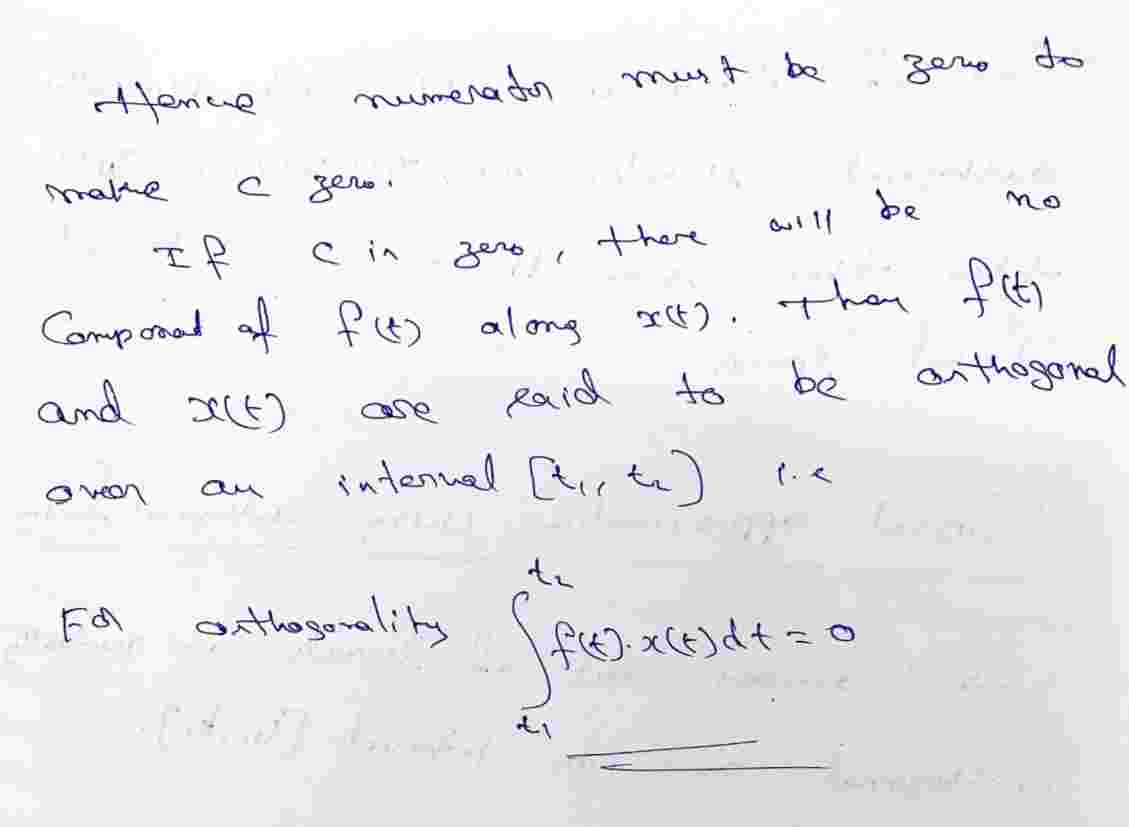 Hence numerator must be zero to
make c zero.
If c is zero, there will be no
Component of f(t) along x(t). Then f(t)
and x(t) are said to be orthogonal
over an interval [t₁, t₂] i.e
For orthogonality ∫_{t₁}^{t₂} f(t).x(t)dt = 0